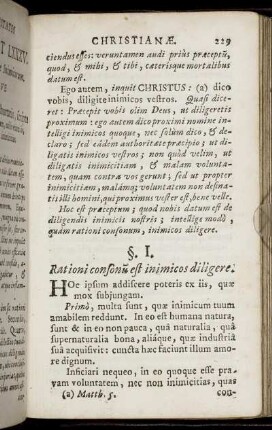 CHRISTIANÆ. 229
tiendus esses: veruntamen audi priùs præceptũ,
quod, & mihi, & tibi, cæterisque mortalibus
datum est.
Ego autem, inquit CHRISTUS: (a) dico
vobis, diligite inimicos vestros. Quasi dice-
ret: Præcepit vobis olim Deus, ut diligeretis
proximum: ego autem dico proximi nomine in-
telligi inimicos quoque, nec solùm dico, & de-
claro; sed eâdem authoritate præcipio; ut di-
ligatis inimicos vestros; non quòd velim, ut
diligatis inimicitiam, & malam volunta-
tem, quam contra vos gerunt; sed ut propter
inimicitiam, malámq; voluntatem non desina-
tis illi homini, qui proximus vester est, bene velle.
Hoc est præceptum; quod nobis datum est de
diligendis inimicis nostris; intellige modò,
quàm rationi consonum, inimicos diligere.
§. I.
Rationi consonũ est inimicos diligere.
HOc ipsum addiscere poteris ex iis, quæ
mox subjungam.
Primò, multa sunt, quæ inimicum tuum
amabilem reddunt. In eo est humana natura,
sunt & in eo non pauca, quâ naturalia, quâ
supernaturalia bona, aliáque, quæ industriâ
suâ acquisivit: cuncta hæc faciunt illum amo-
re dignum.
Inficiari nequeo, in eo quoque esse pra-
vam voluntatem, nec non inimicitias, quas
(a) Matth. 5. con-